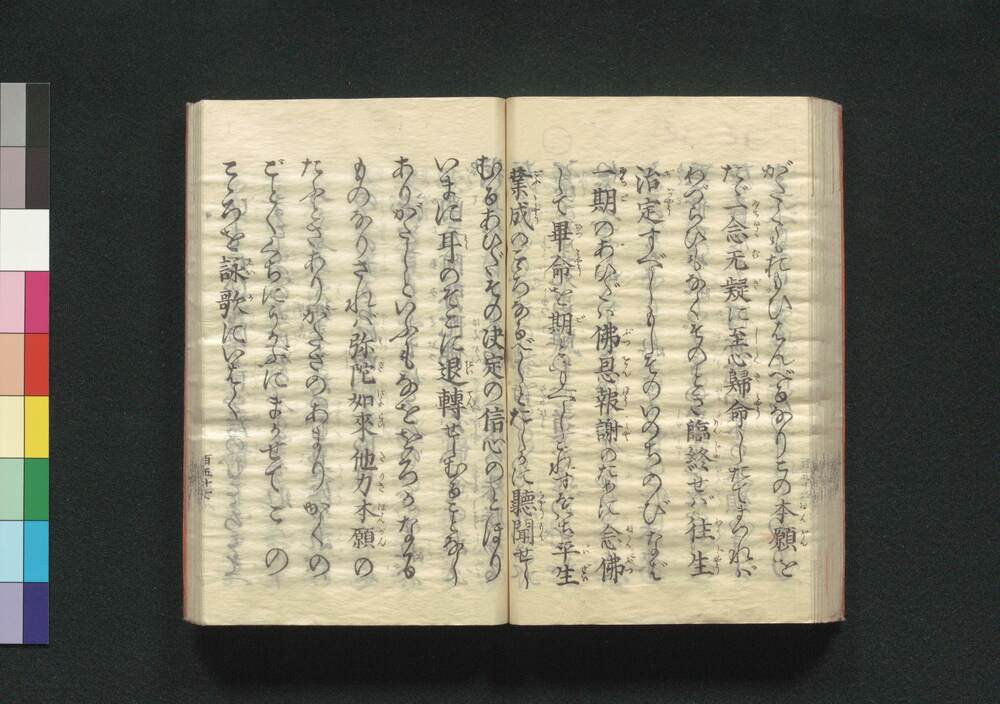 がたくおもひはんべるなりこの本願を
たゞ一念无疑に至心歸命したてまつれば
わづらひもなくそのとき臨終せば往生
治定すべしもしそのいのちのびなば
一期のあひだは佛恩報謝のために念佛
して畢命を期とすべしこれすなはち平生
業成のこゝろなるべしとたしかに聽聞せし
むるあひだその決定の信心のとほり
いまに耳のそこに退轉せしむることなし
ありがたしといふもなをおろかなる
ものなりされば弥陀如來他力本願の
たふとさありがたさのあまりかくの
ごとくくちにうかぶにまかせてこの
こゝろを詠歌にいはく
百五十七